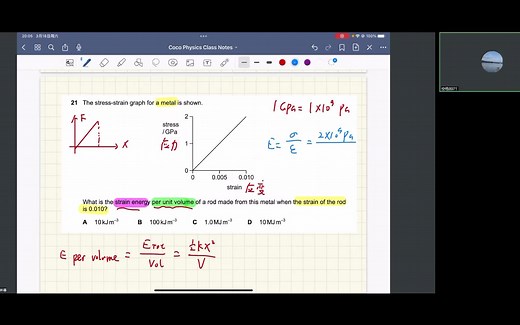 Coco Physics Class Notes
21 The stress-strain graph for a metal is shown.
1 GPa = 1×10⁹ Pa
F
x
stress
/ GPa
应力
2
1
0
0 0.005 0.010
strain 应变
E = σ/ε = 2×10⁹ Pa
What is the strain energy per unit volume of a rod made from this metal when the strain of the rod
is 0.010?
A 10 kJ m⁻³ B 100 kJ m⁻³ C 1.0 MJ m⁻³ D 10 MJ m⁻³
E per volume = E tot / Vol = ½kx² / V